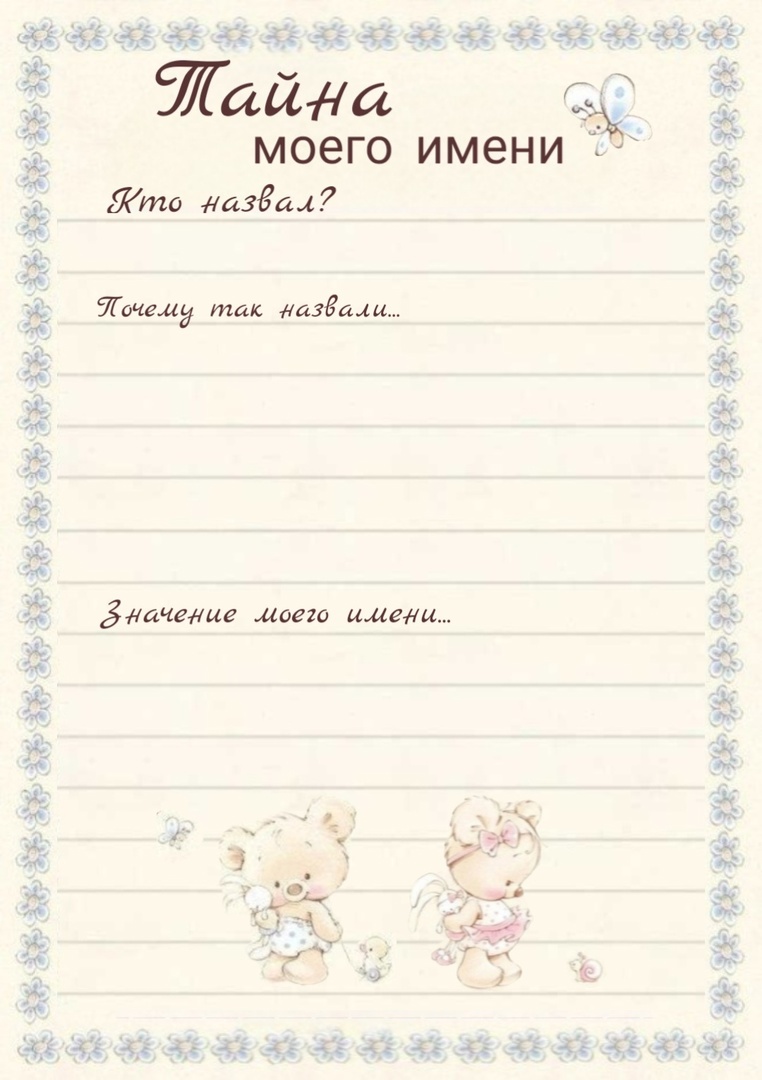 Тайна
моего имени
Кто назвал?
Почему так назвали...
Значение моего имени...